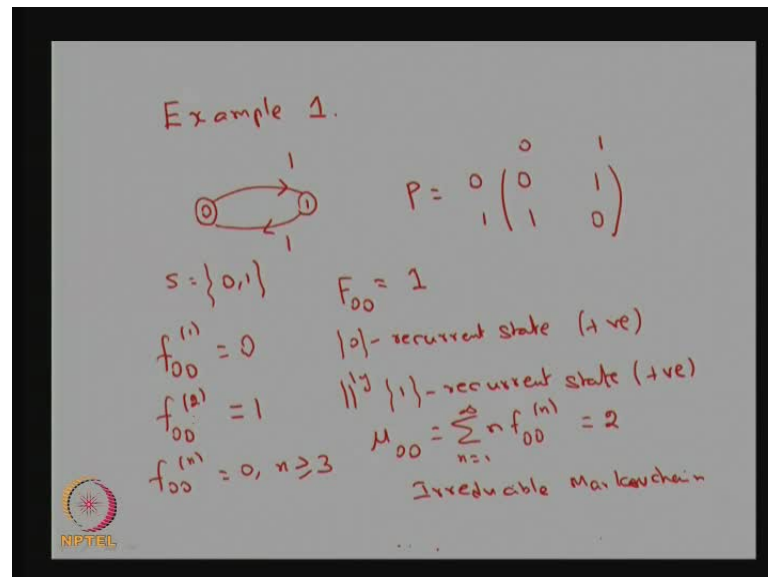 Example 1.
1
0 1
1
P = 0 ( 0 1 )
1 ( 1 0 )
S = {0,1}
F₀₀ = 1
f₀₀⁽¹⁾ = 0
{0}- recurrent state (+ve)
f₀₀⁽²⁾ = 1
|||ly {1}- recurrent state (+ve)
f₀₀⁽ⁿ⁾ = 0, n ≥ 3
μ₀₀ = ∑ₙ₌₁^∞ n f₀₀⁽ⁿ⁾ = 2
Irreducible Markovchain
NPTEL